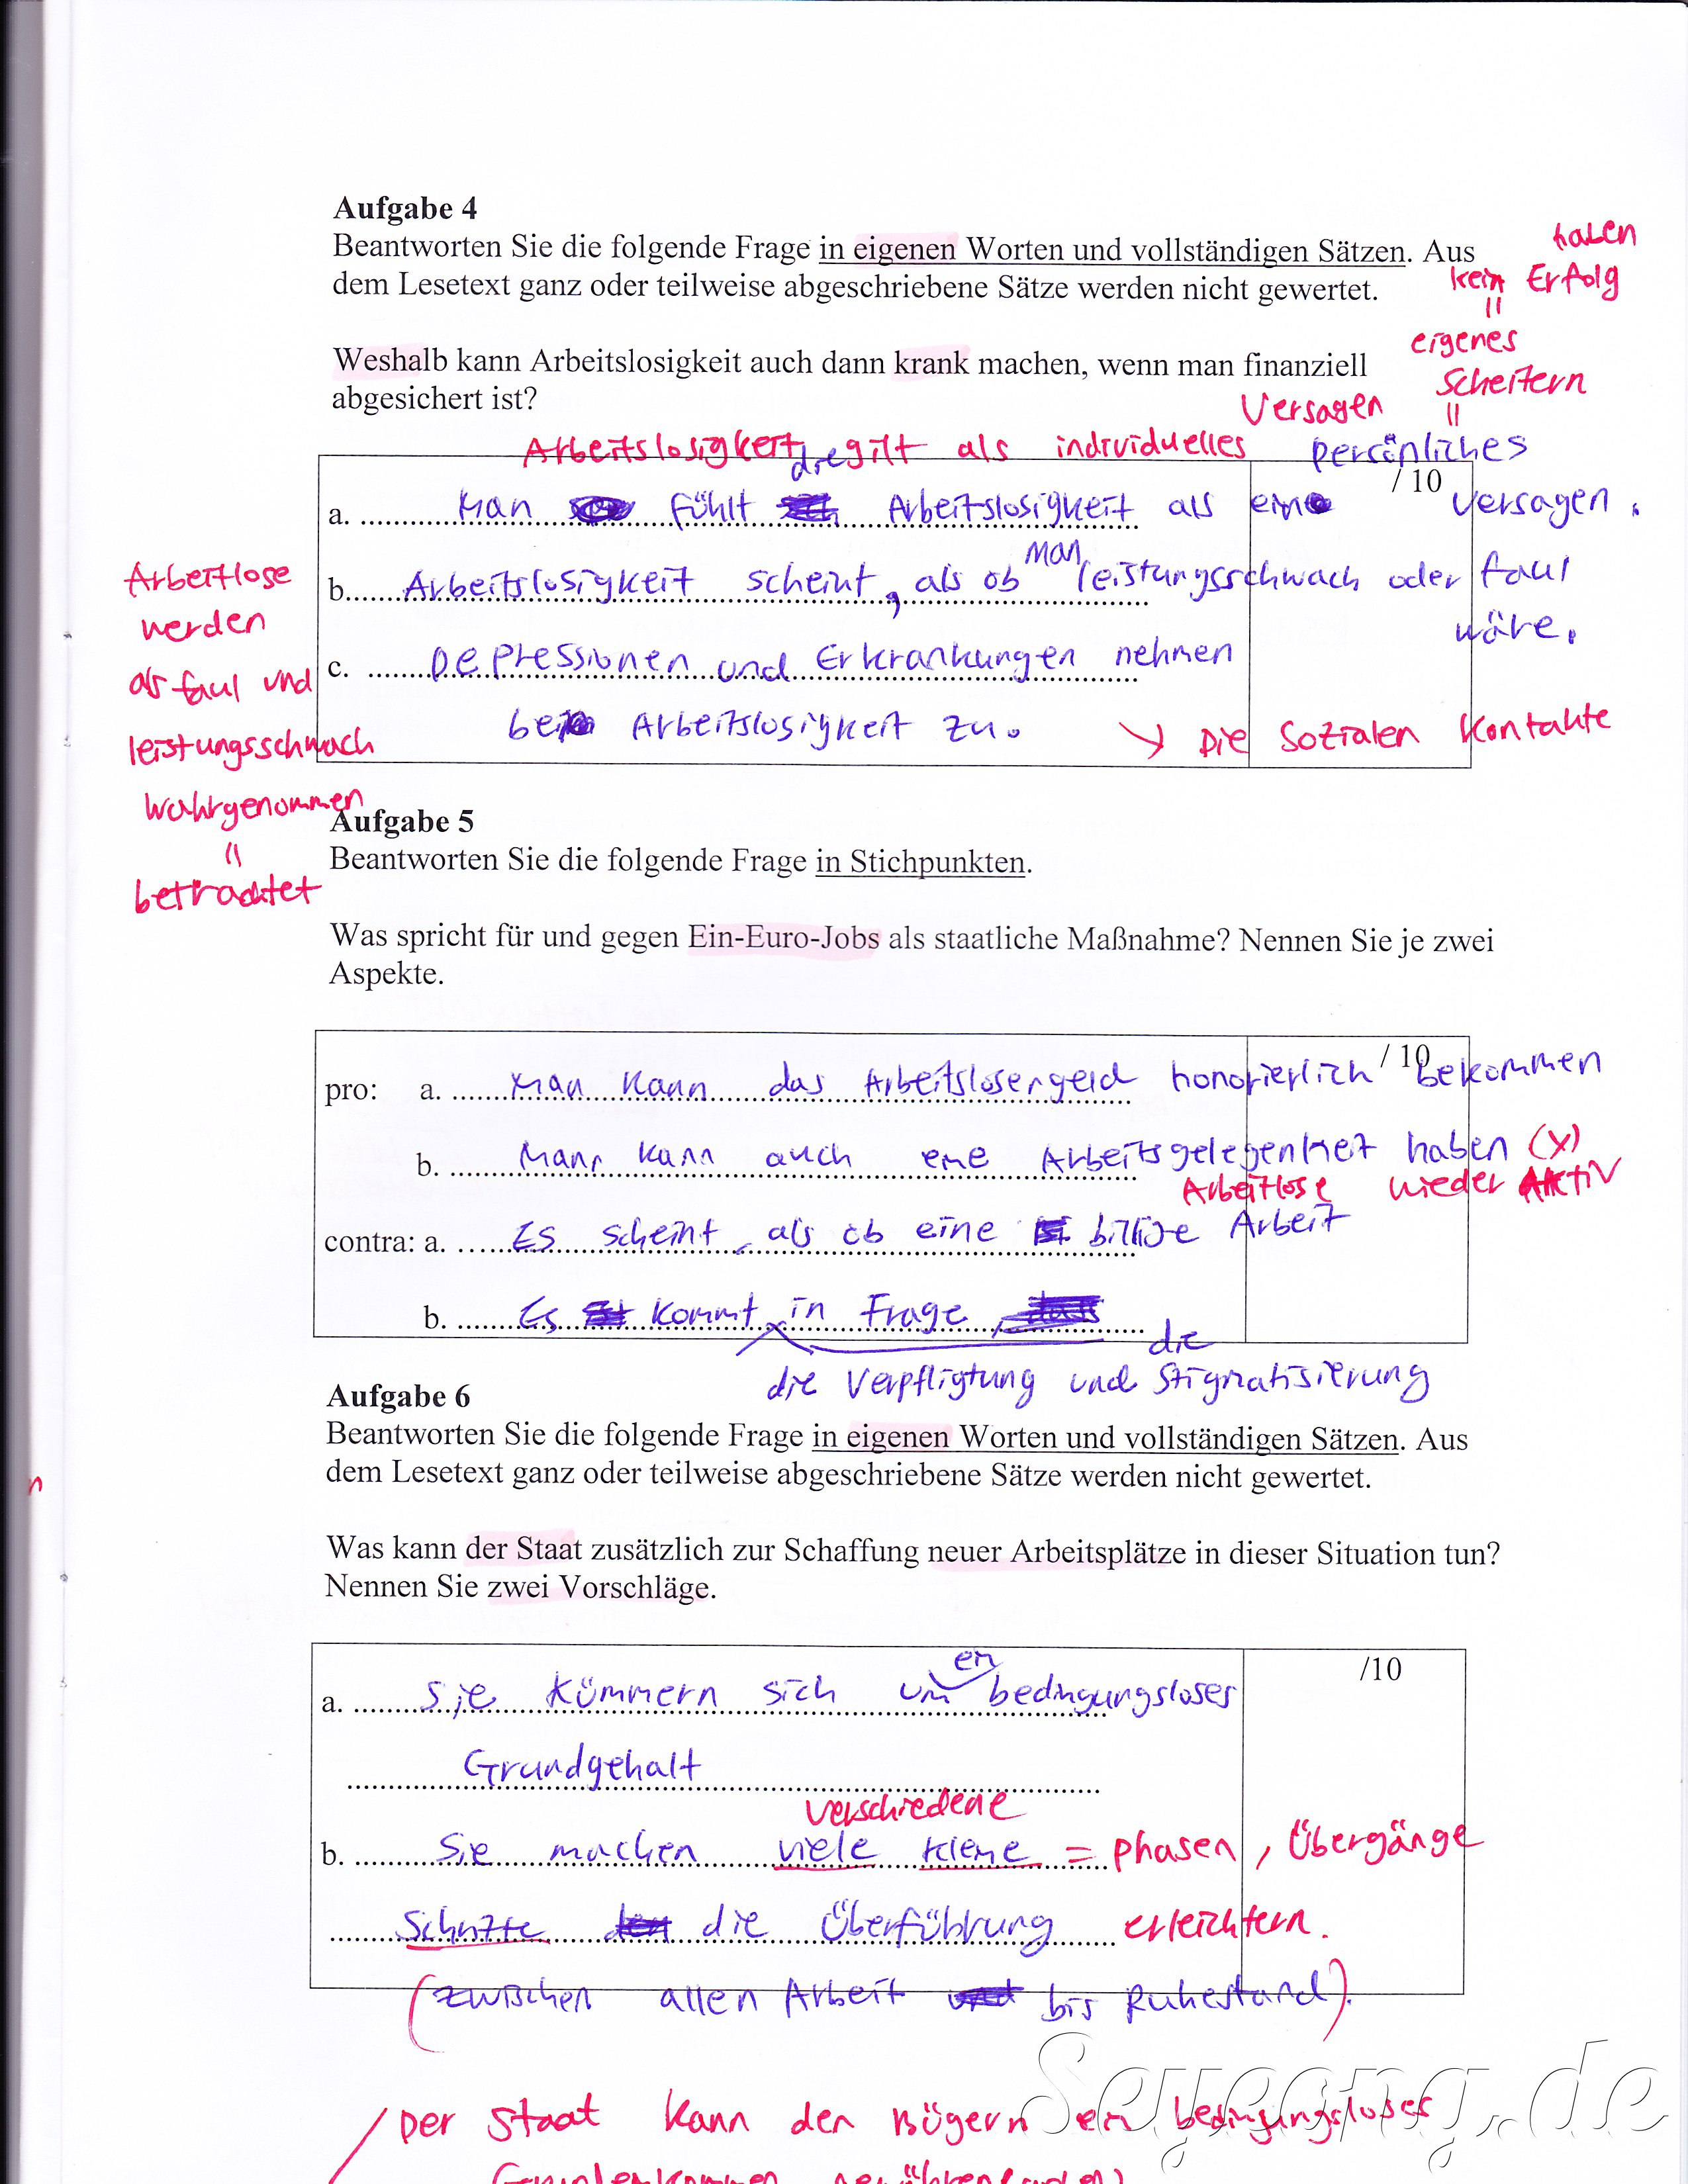 Aufgabe 4
Beantworten Sie die folgende Frage in eigenen Worten und vollständigen Sätzen. Aus
dem Lesetext ganz oder teilweise abgeschriebene Sätze werden nicht gewertet.
haben
kein Erfolg
=
eigenes
Scheitern
=
Weshalb kann Arbeitslosigkeit auch dann krank machen, wenn man finanziell
abgesichert ist?
Arbeitslosigkeit gilt als individuelles Versagen
persönliches
/ 10
a. Man fühlt die Arbeitslosigkeit als ein Versagen.
b. Arbeitslosigkeit scheint, als ob man leistungsschwach oder faul
wäre.
c. Depressionen und Erkrankungen nehmen
bei Arbeitslosigkeit zu.
→ Die Sozialen Kontakte
Arbeitlose
werden
als faul und
leistungsschwach
wahrgenommen
=
betrachtet
Aufgabe 5
Beantworten Sie die folgende Frage in Stichpunkten.
Was spricht für und gegen Ein-Euro-Jobs als staatliche Maßnahme? Nennen Sie je zwei
Aspekte.
/ 10
pro: a. Man kann das Arbeitslosengeld honorierlich bekommen
b. Mann kann auch eine Arbeitsgelegenheit haben (x)
Arbeitlose wieder Aktiv
contra: a. Es scheint, als ob eine billige Arbeit
b. Es kommt in Frage
die Verpfligtung und die Stigmatisierung
Aufgabe 6
Beantworten Sie die folgende Frage in eigenen Worten und vollständigen Sätzen. Aus
dem Lesetext ganz oder teilweise abgeschriebene Sätze werden nicht gewertet.
Was kann der Staat zusätzlich zur Schaffung neuer Arbeitsplätze in dieser Situation tun?
Nennen Sie zwei Vorschläge.
/10
a. Sie kümmern sich um ein bedingungsloses
Grundgehalt
verschiedene
b. Sie machen viele kleine = phasen, Übergänge
Schritte die Überführung erleichtern.
(zwischen allen Arbeit bis Ruhestand).
Der Staat kann den Bügern ein bedingungsloses
Seyeong.de